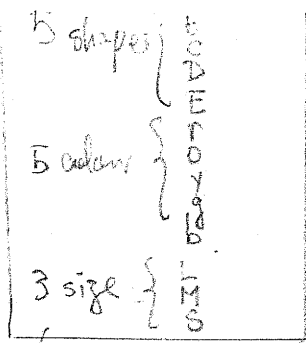 5 shapes {
C
D
E
5 colors {
r
o
y
g
b
3 size {
L
M
S